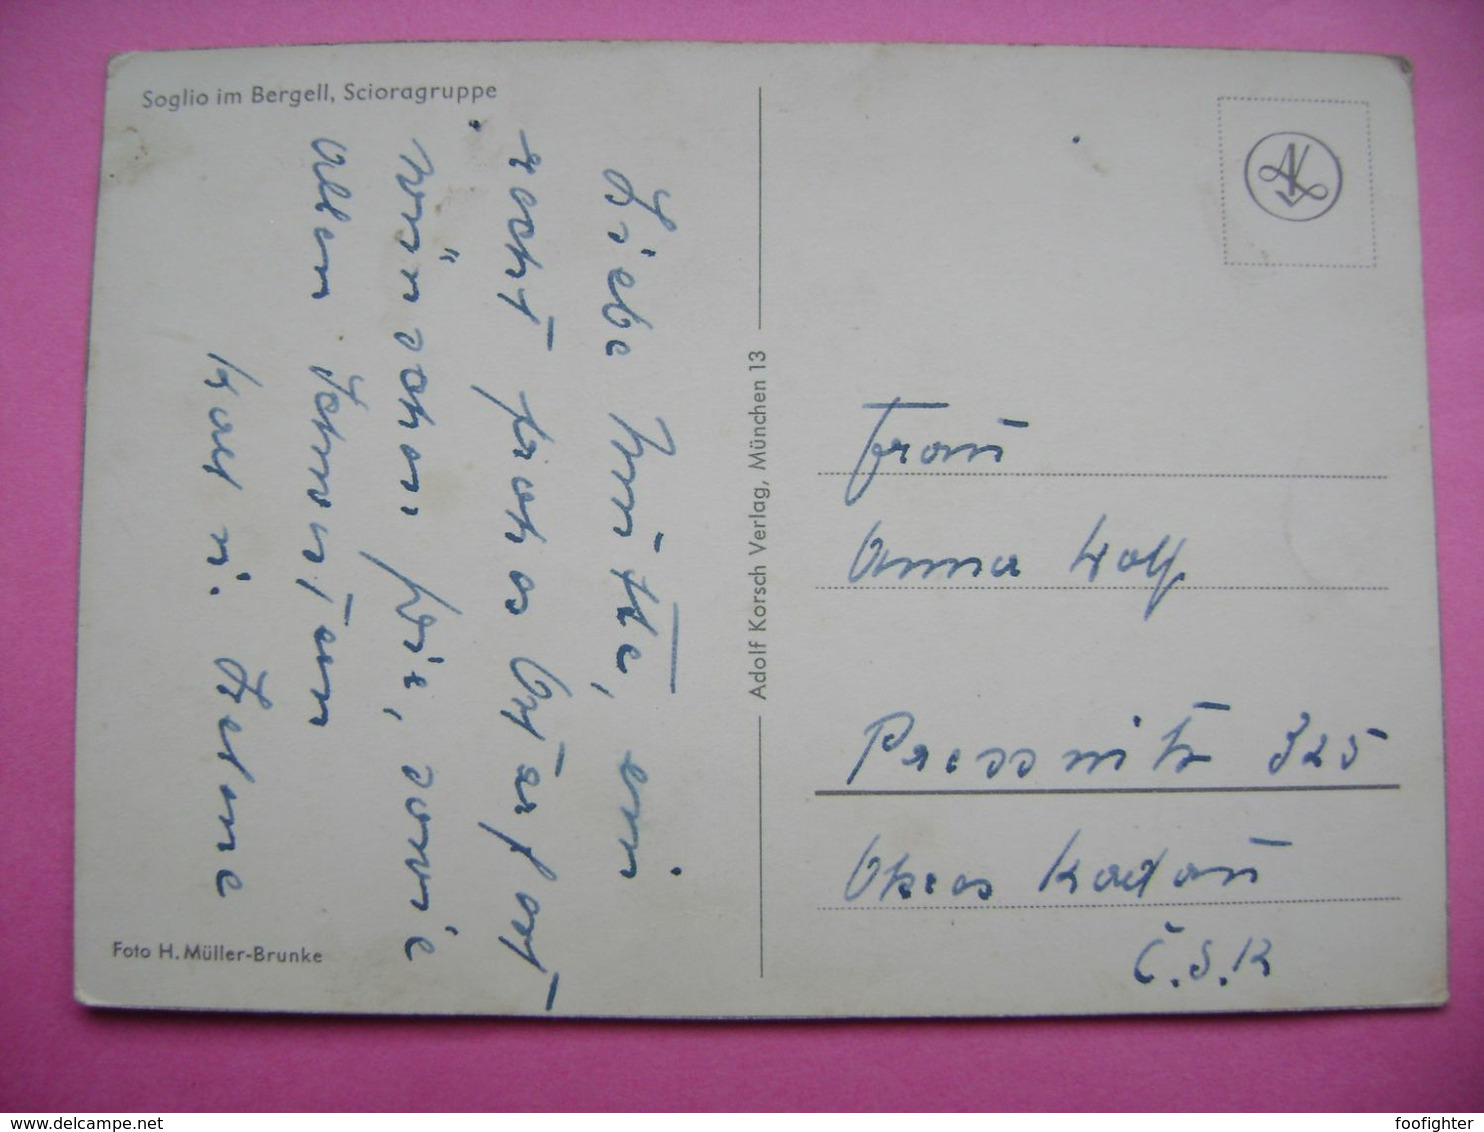 Soglio im Bergell, Scioragruppe
Liebe Mutter, ein
recht frohes Osterfest
wünschen Dir, sowie
allen Bekannten
Karl u. Helene
Foto H. Müller-Brunke
Adolf Korsch Verlag, München 13
AK
Frau
Anna Wolf
Pressnitz 325
Okres Kadaň
Č.S.R
delcampe.net
foofighter